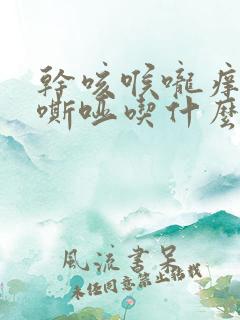 幹咳喉嚨癢
嘶啞喫什麼
風流書呆
未經同意禁止搭訕